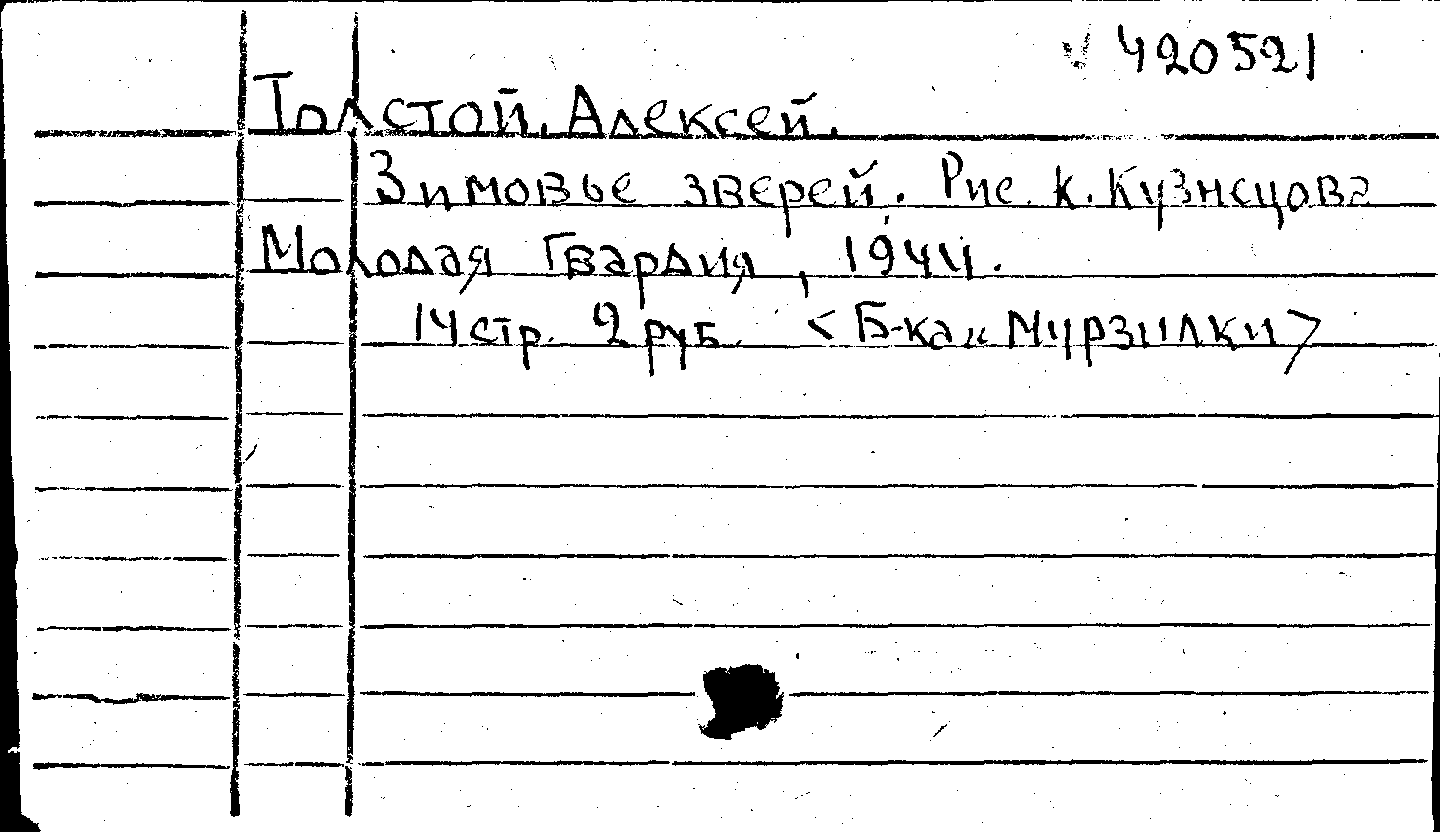 √ 420521
Толстой, Алексей.
Зимовье зверей. Рис. К. Кузнецова
Молодая Гвардия, 1944.
14 стр. 2 руб. <Б-ка „Мурзилки>